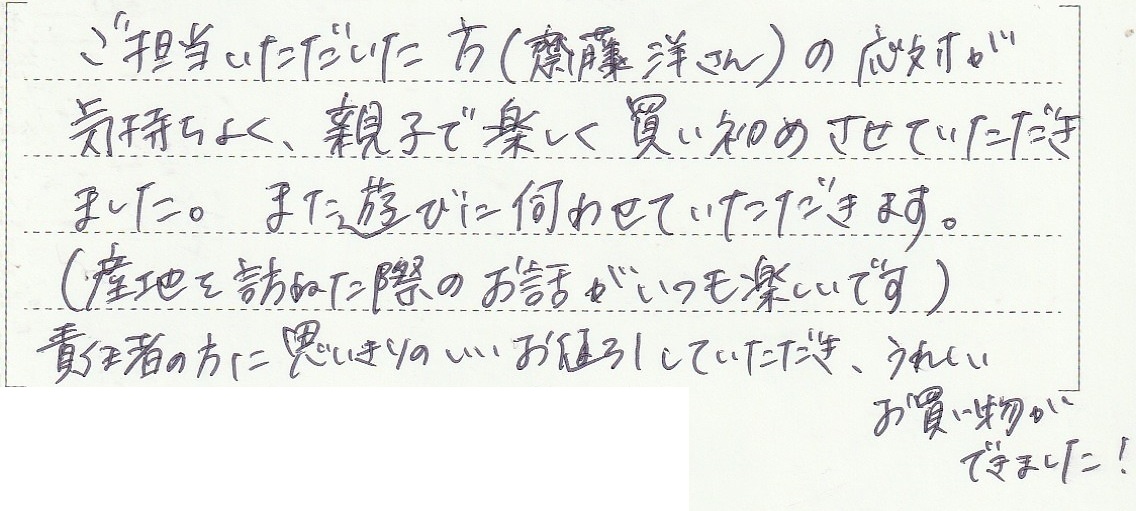 ご担当いただいた方(齋藤洋さん)の応対が
気持ちよく、親子で楽しく買い初めさせていただき
ました。また遊びに伺わせていただきます。
(産地を訪ねた際のお話がいつも楽しいです)
責任者の方に思いきりのいいお値引していただき、うれしい
お買い物が
できました!